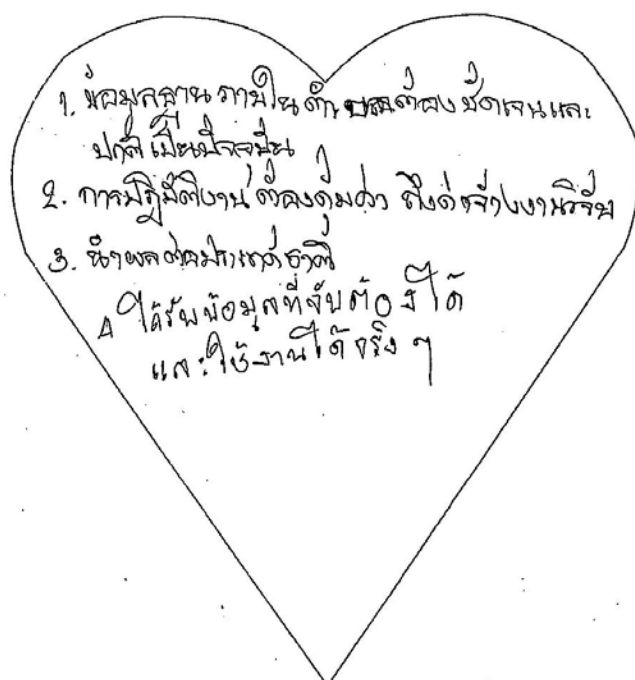 1. ข้อมูลฐาน ภายในตำบลต้องชัดเจนและ
ปกติ เป็นปัจจุบัน
2. การปฏิบัติงาน ต้องคุ้มค่า ถึงค่าจ้างงานวิจัย
3. นำผล
4 ได้รับข้อมูลที่จับต้องได้
และใช้งานได้จริง ๆ